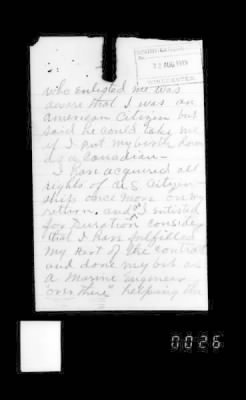 22 AUG 1919
WINCHESTER
who enlisted me was
aware that I was an
American Citizen but
said he could take me
if I put my birth down
as a Canadian-
I have acquired all
rights of U.S Citizen
ship once more on my
return. and I enlisted
for Duration consider
that I have fulfilled
my Part of the contract
and done my bit as
a Marine Engineer
"over there" helping the
0026